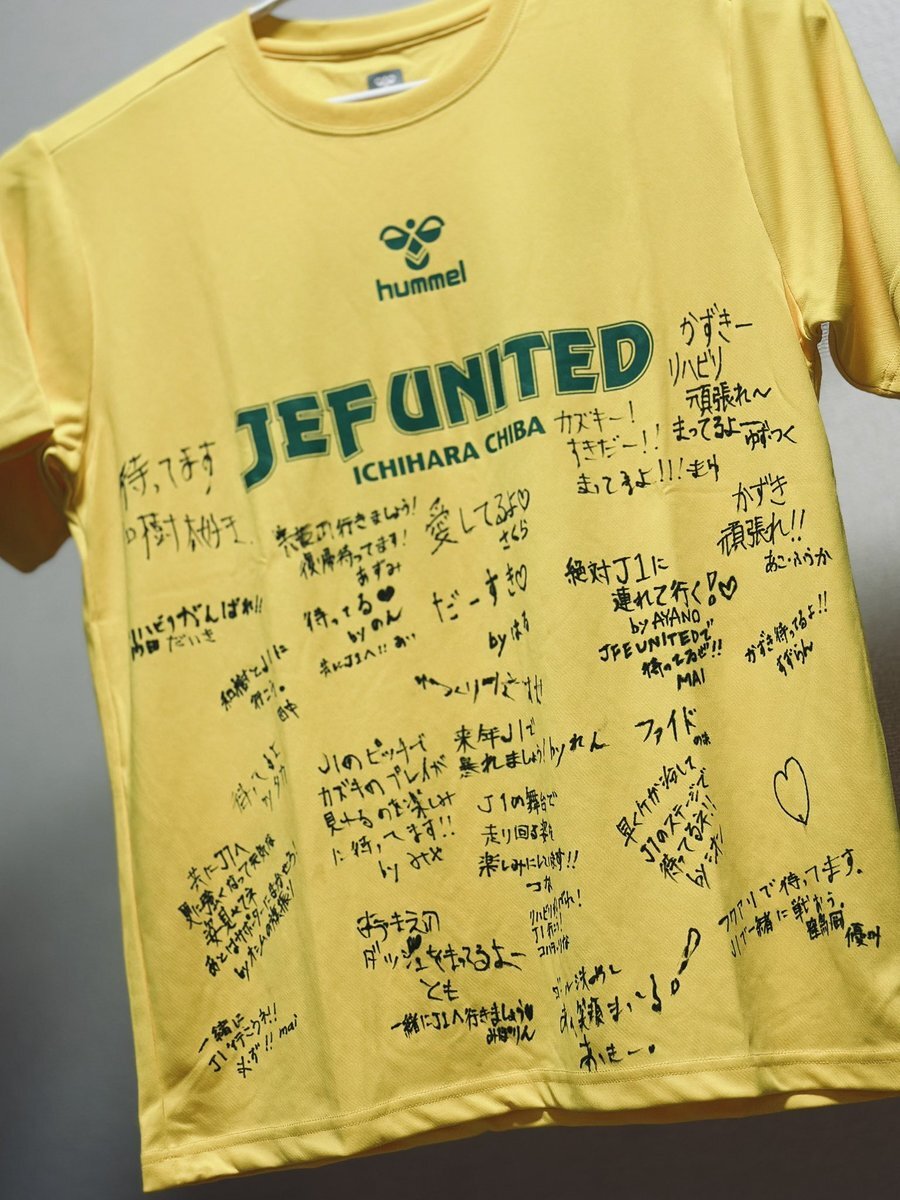 hummel
JEF UNITED
ICHIHARA CHIBA
かずきー
リハビリ
頑張れ〜
まってるよー
ゆずつく
カズキー!
すきだー!!
まってるよ!!!
待ってます
樹大好き
かずき
頑張れ!!
あこ・ふうか
共にJ1行きましょう!
復帰待ってます!
あずみ
愛してるよ♡
さくら
待ってる♥
byのん
共にJ1へ!!
だーすき♡
byはる
絶対J1に
連れて行く!♡
by AYANO
JFE UNITEDで
待ってるぜ!!
MAI
かずき待ってるよ!!
すずらん
リハビリがんばれ!!
だいき
和樹とJ1に
行こう。
田中
待ってるよ
J1のピッチで
カズキのプレイが
見れるのを楽しみ
に待ってます!!
by
来年J1で
暴れましょう! by れん
ファイト
J1の舞台で
走り回る姿を
楽しみにしています!!
リハビリがんばれ!
早くケガ治して
J1のステージで
待ってるネ!!
by
♡
共にJ1へ
更に強くなって
姿見せてネ
あとはサポーターにまかせろ!
フクアリで待ってます。
J1で一緒に戦おう。
ダッシュをまってるよー
とも
一緒にJ1へ行きましょう♥
みぽりん
一緒に
J1行こうネ!!
mai
笑顔まいてる!
あいきー。